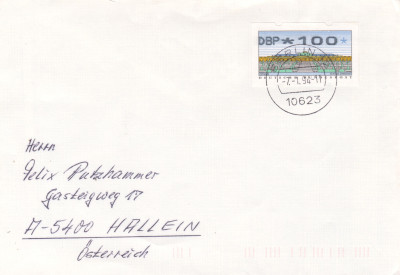 DBP *100
BERLIN
-7.-1.94-17
10623
Herrn
Felix Putzhammer
Gasteigweg 17
A-5400 HALLEIN
Österreich